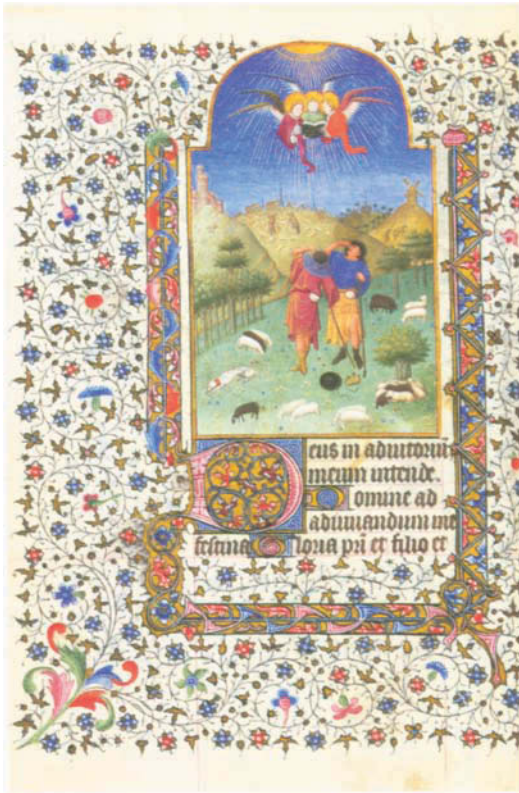 Deus in adiutoriū
meum intende.
Domine ad
adiuuandum me
festina Gloria pri et filio et